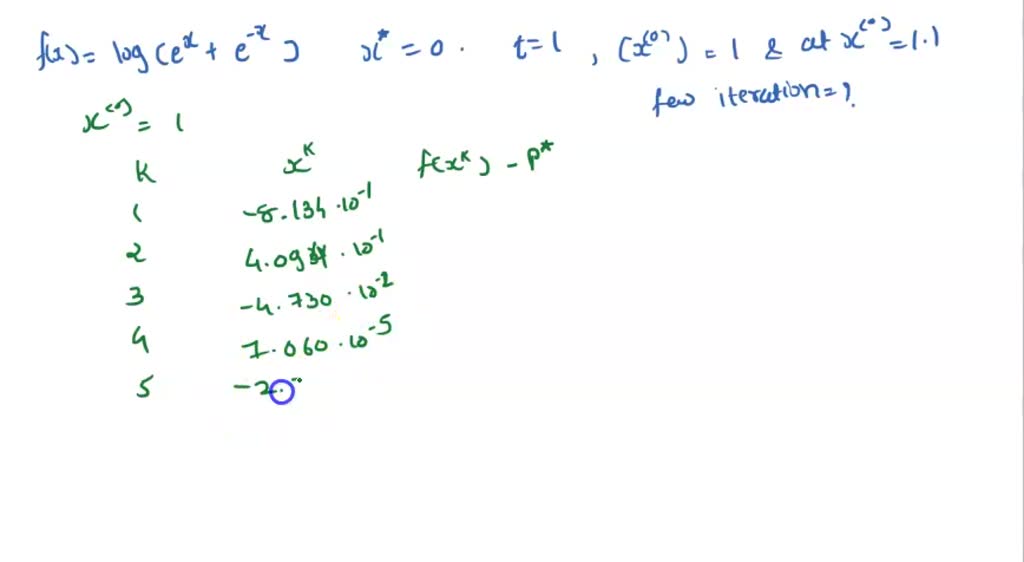 f(x) = log(e^x + e^-x) x* = 0. t=1, (x^(0)) = 1 & at x^(0) = 1.1
few iteration = ?
x^(0) = 1
K x^K f(x^K) - p*
1 -8.134 · 10^-1
2 4.094 · 10^-1
3 -4.730 · 10^-2
4 7.060 · 10^-5
5 -2.